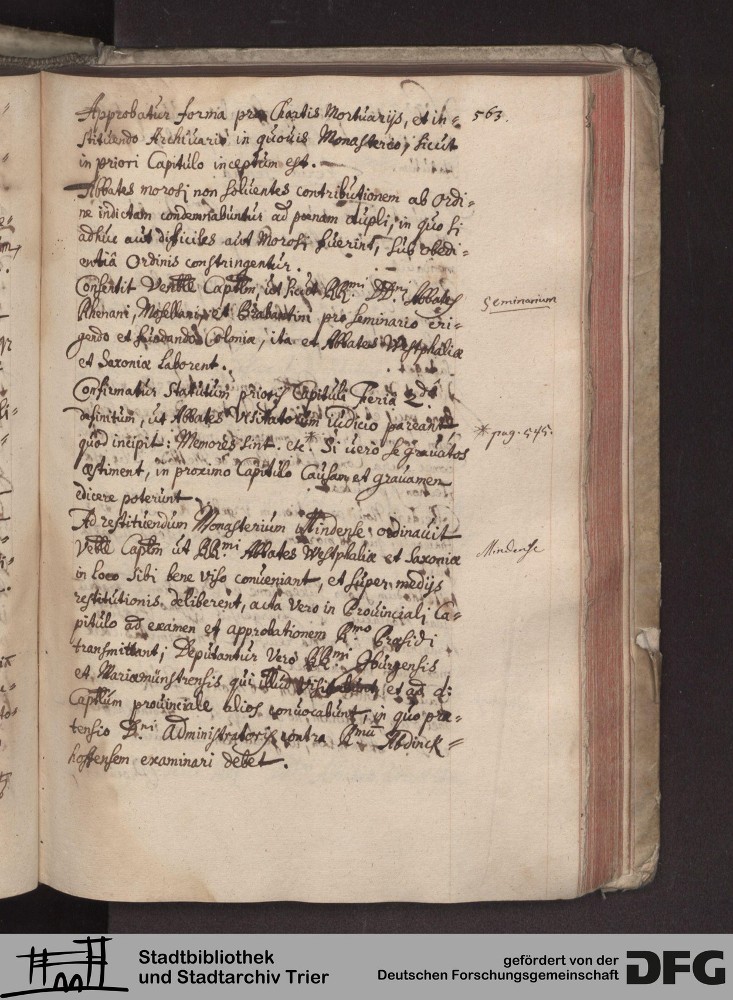 563.
Approbatur forma pro Chartis Mortuarijs, et in=
stituendo Archiuario in quouis Monasterio, sicut
in priori Capitulo inceptum est.
Abbates morosi non soluentes contributionem ab Ordi=
ne indictam condemnabuntur ad pœnam dupli, in quo si
adhuc aut difficiles aut Morosi fuerint, sub obedi=
entiâ Ordinis constringentur.
Consentit Venble Captlm, ut sicut RRmi DDni Abbates
Seminarium
Rhenani, Mosellani, et Brabantini pro Seminario eri=
gendo et fundando Coloniæ, ita et Abbates Westphaliæ
et Saxoniæ laborent.
Confirmatur Statutum prioris Capituli Feria 2da
definitum, ut Abbates Visitatorum iudicio pareant
* pag. 545.
quod incipit: Memores sint. etc.* Si uero se grauatos
æstiment, in proximo Capitulo Causam et grauamen
edicere poterunt.
Ad restituendum Monasterium Mindense ordinauit
Mindense
Veble Captlm ut RRmi Abbates Westphaliæ et Saxoniæ
in loco sibi bene viso conueniant, et super medijs
restitutionis deliberent, acta vero in Prouinciali Ca=
pitulo ad examen et approbationem Rmo Præsidi
transmittant; Deputantur vero RRmi Iburgensis
et Mariæmünstrensis qui illud et ad d:
Captlum prouinciale alios conuocabunt, in quo præ=
tensio Dni Administratoris contra Rmum Abdinck=
hoffensem examinari debet.
Stadtbibliothek
und Stadtarchiv Trier
gefördert von der
Deutschen Forschungsgemeinschaft
DFG